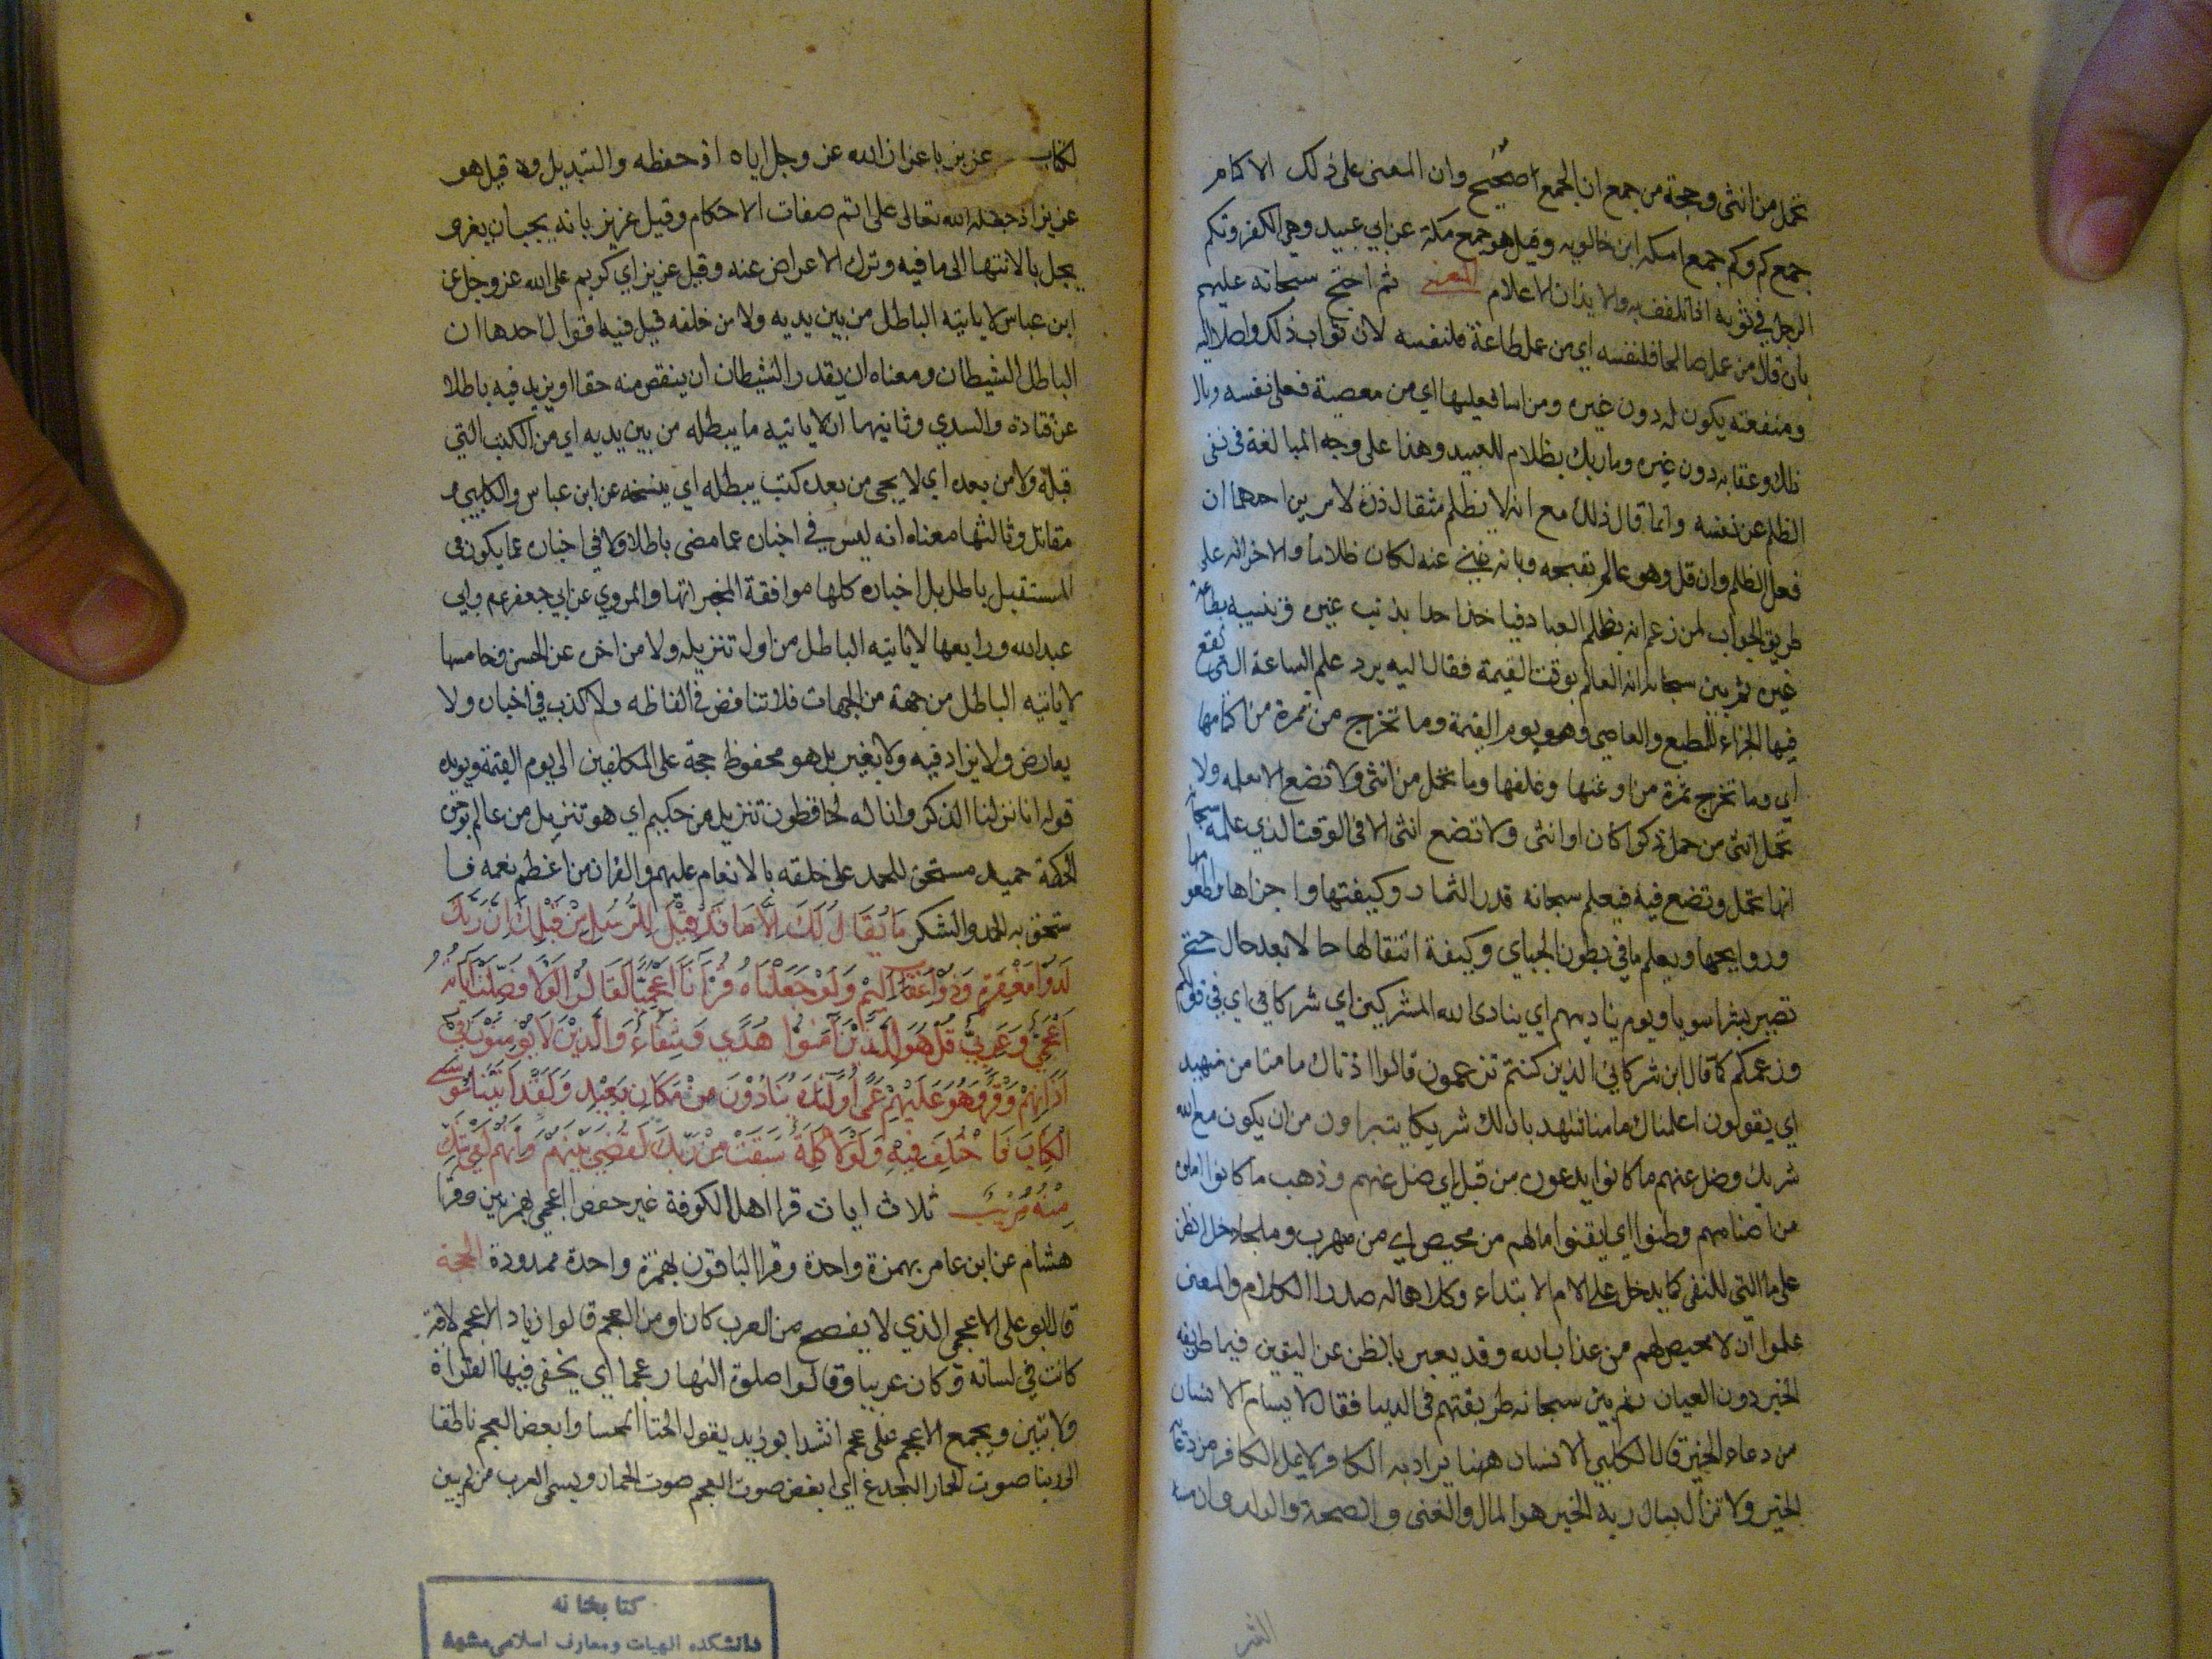 تحمل من انثى وحجة من جمع ان الجمع اصحيح وان المعنى على ذلك الاكام
جمع كم وكم جمع اكمه ابن خالويه وقيل هو جمع مكة عن ابي عبيد وهي الكفر وتكم
الرجل في ثوبه اذا تلفف به والايذان الاعلام المعنى ثم احتج سبحانه عليهم
بان قال من عمل صالحا فلنفسه اي من عمل طاعة فلنفسه لان ثواب ذلك واصل اليه
ومنفعته يكون له دون غيره ومن اسا فعليها اي من معصية فعلى نفسه وبال
ذلك وعقابه دون غيره وما ربك بظلام للعبيد وهذا على وجه المبالغة في نفى
الظلم عن نفسه وانما قال ذلك مع انه لا يظلم مثقال ذرة لامرين احدهما ان
فعل الظلم وان قل وهو عالم بقبحه وبانه غني عنه لكان ظلاما والاخر انه على
طريق الجواب لمن زعم انه يظلم العباد فياخذ احدا بذنب غيره ويثيبه بطاعة
غيره ثم بين سبحانه انه العالم بوقت القيمة فقال اليه يرد علم الساعة التي تقع
فيها الجزاء للمطيع والعاصي وهو يوم القيمة وما تخرج من ثمرة من اكمامها
اي وما تخرج ثمرة من اوعيتها وغلفها وما تحمل من انثى ولا تضع الا بعلمه ولا
تحمل انثى من حمل ذكرا كان او انثى ولا تضع انثى الا في الوقت الذي علمه سبحانه
انها تحمل وتضع فيه فيعلم سبحانه قدر الثمار وكيفيتها واجزاها وطعومها
وروايحها ويعلم ما في بطون الحبالي وكيفة انتقالها حالا بعد حال حتى
تصير بشرا سويا ويوم يناديهم اي ينادى الله المشركين اي شركائي اي في قولكم
وزعمكم كما قال ابن شركائي الذين كنتم تزعمون قالوا اذناك ما منا من شهيد
اي يقولون اعلمناك ما منا شاهد بان لك شريكا يتبراون من ان يكون مع الله
شريك وضل عنهم ما كانوا يدعون من قبل اي ضل عنهم وذهب ما كانوا املوه
من اصنامهم وظنوا اي ايقنوا مالهم من محيص اي من مهرب وملجا دخل الظن
على ما التي للنفى كما يدخل على لام الابتداء وكلاهما له صدر الكلام والمعنى
علموا ان لا محيص لهم من عذاب الله وقد يعبر بالظن عن اليقين فيما طريقه
الخبر دون العيان ثم بين سبحانه طريقتهم في الدنيا فقال لا يسام الانسان
من دعاء الخير قال الكلبي الانسان ههنا يراد به الكافر لا يمل الكافر من دعائه
الخير ولا تزال يسال ربه الخير هو المال والغنى والصحة والولد
لكتاب عزيز باعزاز الله عز وجل اياه اذ حفظه والتبديل وقيل هو
عزيز اذ جعله الله تعالى على اتم صفات الاحكام وقيل عزيز بانه يجب ان يعز و
يجل بالانتهاء الى ما فيه وترك الاعراض عنه وقيل عزيز اي كريم على الله عز وجل عن
ابن عباس لا ياتيه الباطل من بين يديه ولا من خلفه قيل فيه اقوال احدها ان
الباطل الشيطان ومعناه ان يقدر الشيطان ان ينقص منه حقا او يزيد فيه باطلا
عن قتادة والسدي وثانيهما انه لا ياتيه ما يبطله من بين يديه اي من الكتب التي
قبله ولا من بعده اي لا يجي من بعده كتب يبطله اي ينسخه عن ابن عباس والكلبي و
مقاتل وثالثها معناه انه ليس في اخباره عما مضى باطلا ولا في اخباره عما يكون في
المستقبل باطل بل اخباره كلها موافقة المخبراتها والمروي عن ابي جعفر عم وابي
عبد الله ورابعها لا ياتيه الباطل من اول تنزيله ولا من اخره عن الحسن وخامسها
لا ياتيه الباطل من جهة من الجهات فلا تناقض في الفاظه ولا كذب في اخباره ولا
يعارض ولا يزاد فيه ولا يغير بل هو محفوظ حجة على المكلفين الى يوم القيمة ويويده
قوله انا نزلنا الذكر وانا له لحافظون تنزيل من حكيم اي هو تنزيل من عالم بوجوه
الحكمة حميد مستحق للحمد على خلقه بالانعام عليهم والقران من اعظم نعمه فا
ستحق به الحمد والشكر مَا يُقَالُ لَكَ اِلَّا مَا قَدْ قِيْلَ لِلرُّسُلِ مِنْ قَبْلِكَ اِنَّ رَبَّكَ
لَذُوْا مَغْفِرَةٍ وَذُوْا عِقَابٍ اَلِيْمٍ وَلَوْ جَعَلْنَاهُ قُرْآنًا اَعْجَمِيًّا لَقَالُوْا لَوْلَا فُصِّلَتْ اٰيَاتُهُ
ءَاَعْجَمِيٌّ وَعَرَبِيٌّ قُلْ هُوَ لِلَّذِيْنَ آمَنُوْا هُدًى وَشِفَاءٌ وَالَّذِيْنَ لَا يُؤْمِنُوْنَ فِيْ
اٰذَانِهِمْ وَقْرٌ وَهُوَ عَلَيْهِمْ عَمًى اُولٰئِكَ يُنَادَوْنَ مِنْ مَكَانٍ بَعِيْدٍ وَلَقَدْ اٰتَيْنَا مُوْسٰى
الْكِتَابَ فَاخْتُلِفَ فِيْهِ وَلَوْلَا كَلِمَةٌ سَبَقَتْ مِنْ رَبِّكَ لَقُضِيَ بَيْنَهُمْ وَاِنَّهُمْ لَفِيْ شَكٍّ
مِنْهُ مُرِيْبٍ ثلاث ايات قرا اهل الكوفة غير حفص ااعجمي بهمزتين وقرا
هشام عن ابن عامر بهمزة واحدة وقرا الباقون بهمزة واحدة ممدودة الحجة
قال ابو على الاعجمي الذي لا يفصح من العرب كان او من العجم قالوا زياد الاعجم لافة
كانت في لسانه وكان عربيا وقالوا صلوة النهار عجما اي يخفى فيها القراة
ولا تبين ويجمع الاعجم على عجم انشد ابو زيد يقول الخنا وابغض العجم ناطقا
الى ربنا صوت الحمار اليجدع اي ابغض صوت العجم صوت الحمار ويسمى العرب من لم يبين
كتابخانه
دانشكده الهيات ومعارف اسلامي مشهد